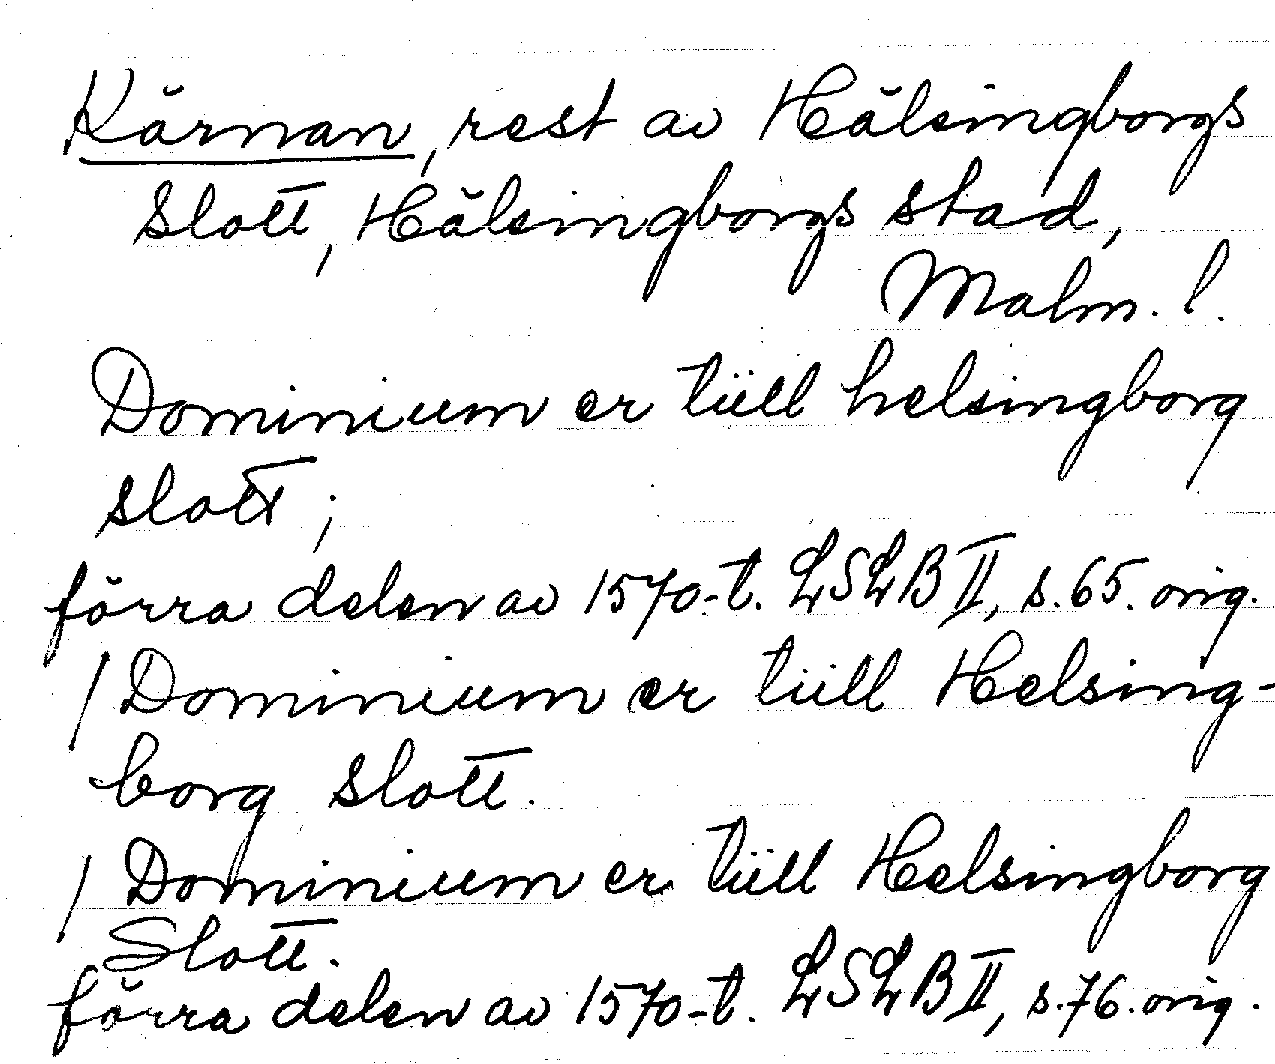 Kärnan, rest av Hälsingborgs
slott, Hälsingborgs stad,
Malm. l.
Dominium er tüll helsingborg
slott;
förra delen av 1570-t. LSLB II, s. 65. orig.
/ Dominium er tüll Helsing-
borg slott.
/ Dominium er tüll Helsingborg
Slott.
förra delen av 1570-t. LSLB II, s. 76. orig.